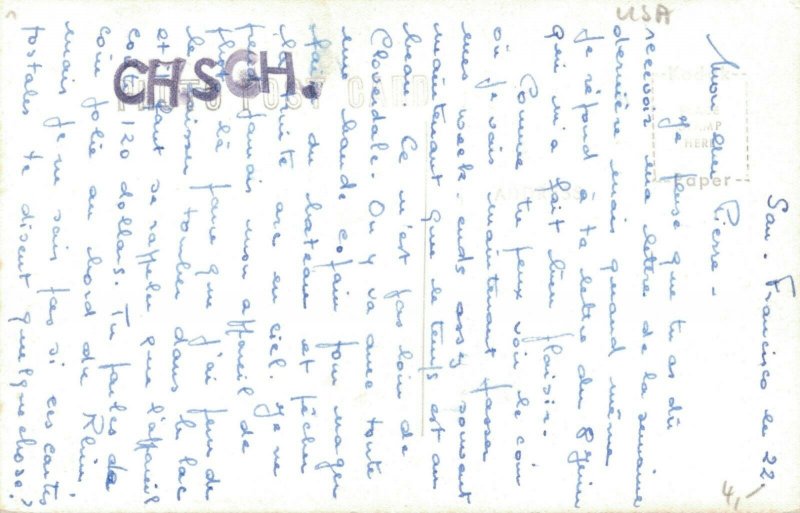 USA
San-Francisco le 22.
Mon cher Pierre -
Je pense que tu as dû
recevoir ma lettre de la semaine
dernière mais quand même
je répond à ta lettre du 8 Juin
qui m'a fait bien plaisir.
Comme tu peux voir le coin
où je vais maintenant passer
mes week-ends assez souvent
maintenant que le temps est au
beau. Ce n'est pas loin de
Cloverdale. On y va avec toute
une bande copain pour nager
faire du bateau et pêcher
la truite arc en ciel. Je ne
prend jamais mon appareil de
photo là parce que j'ai peur de
le laisser tomber dans le lac
et faut se rappeler que l'appareil
coûte 120 dollars. Tu parles de
coin jolie au bord du Rhin
mais je ne sais pas si ces cartes
postales te disent quelque chose?
CHSCH.
PHOTO POST CARD
Kodak
PLACE
STAMP
HERE
Paper
ADDRESS
4,-